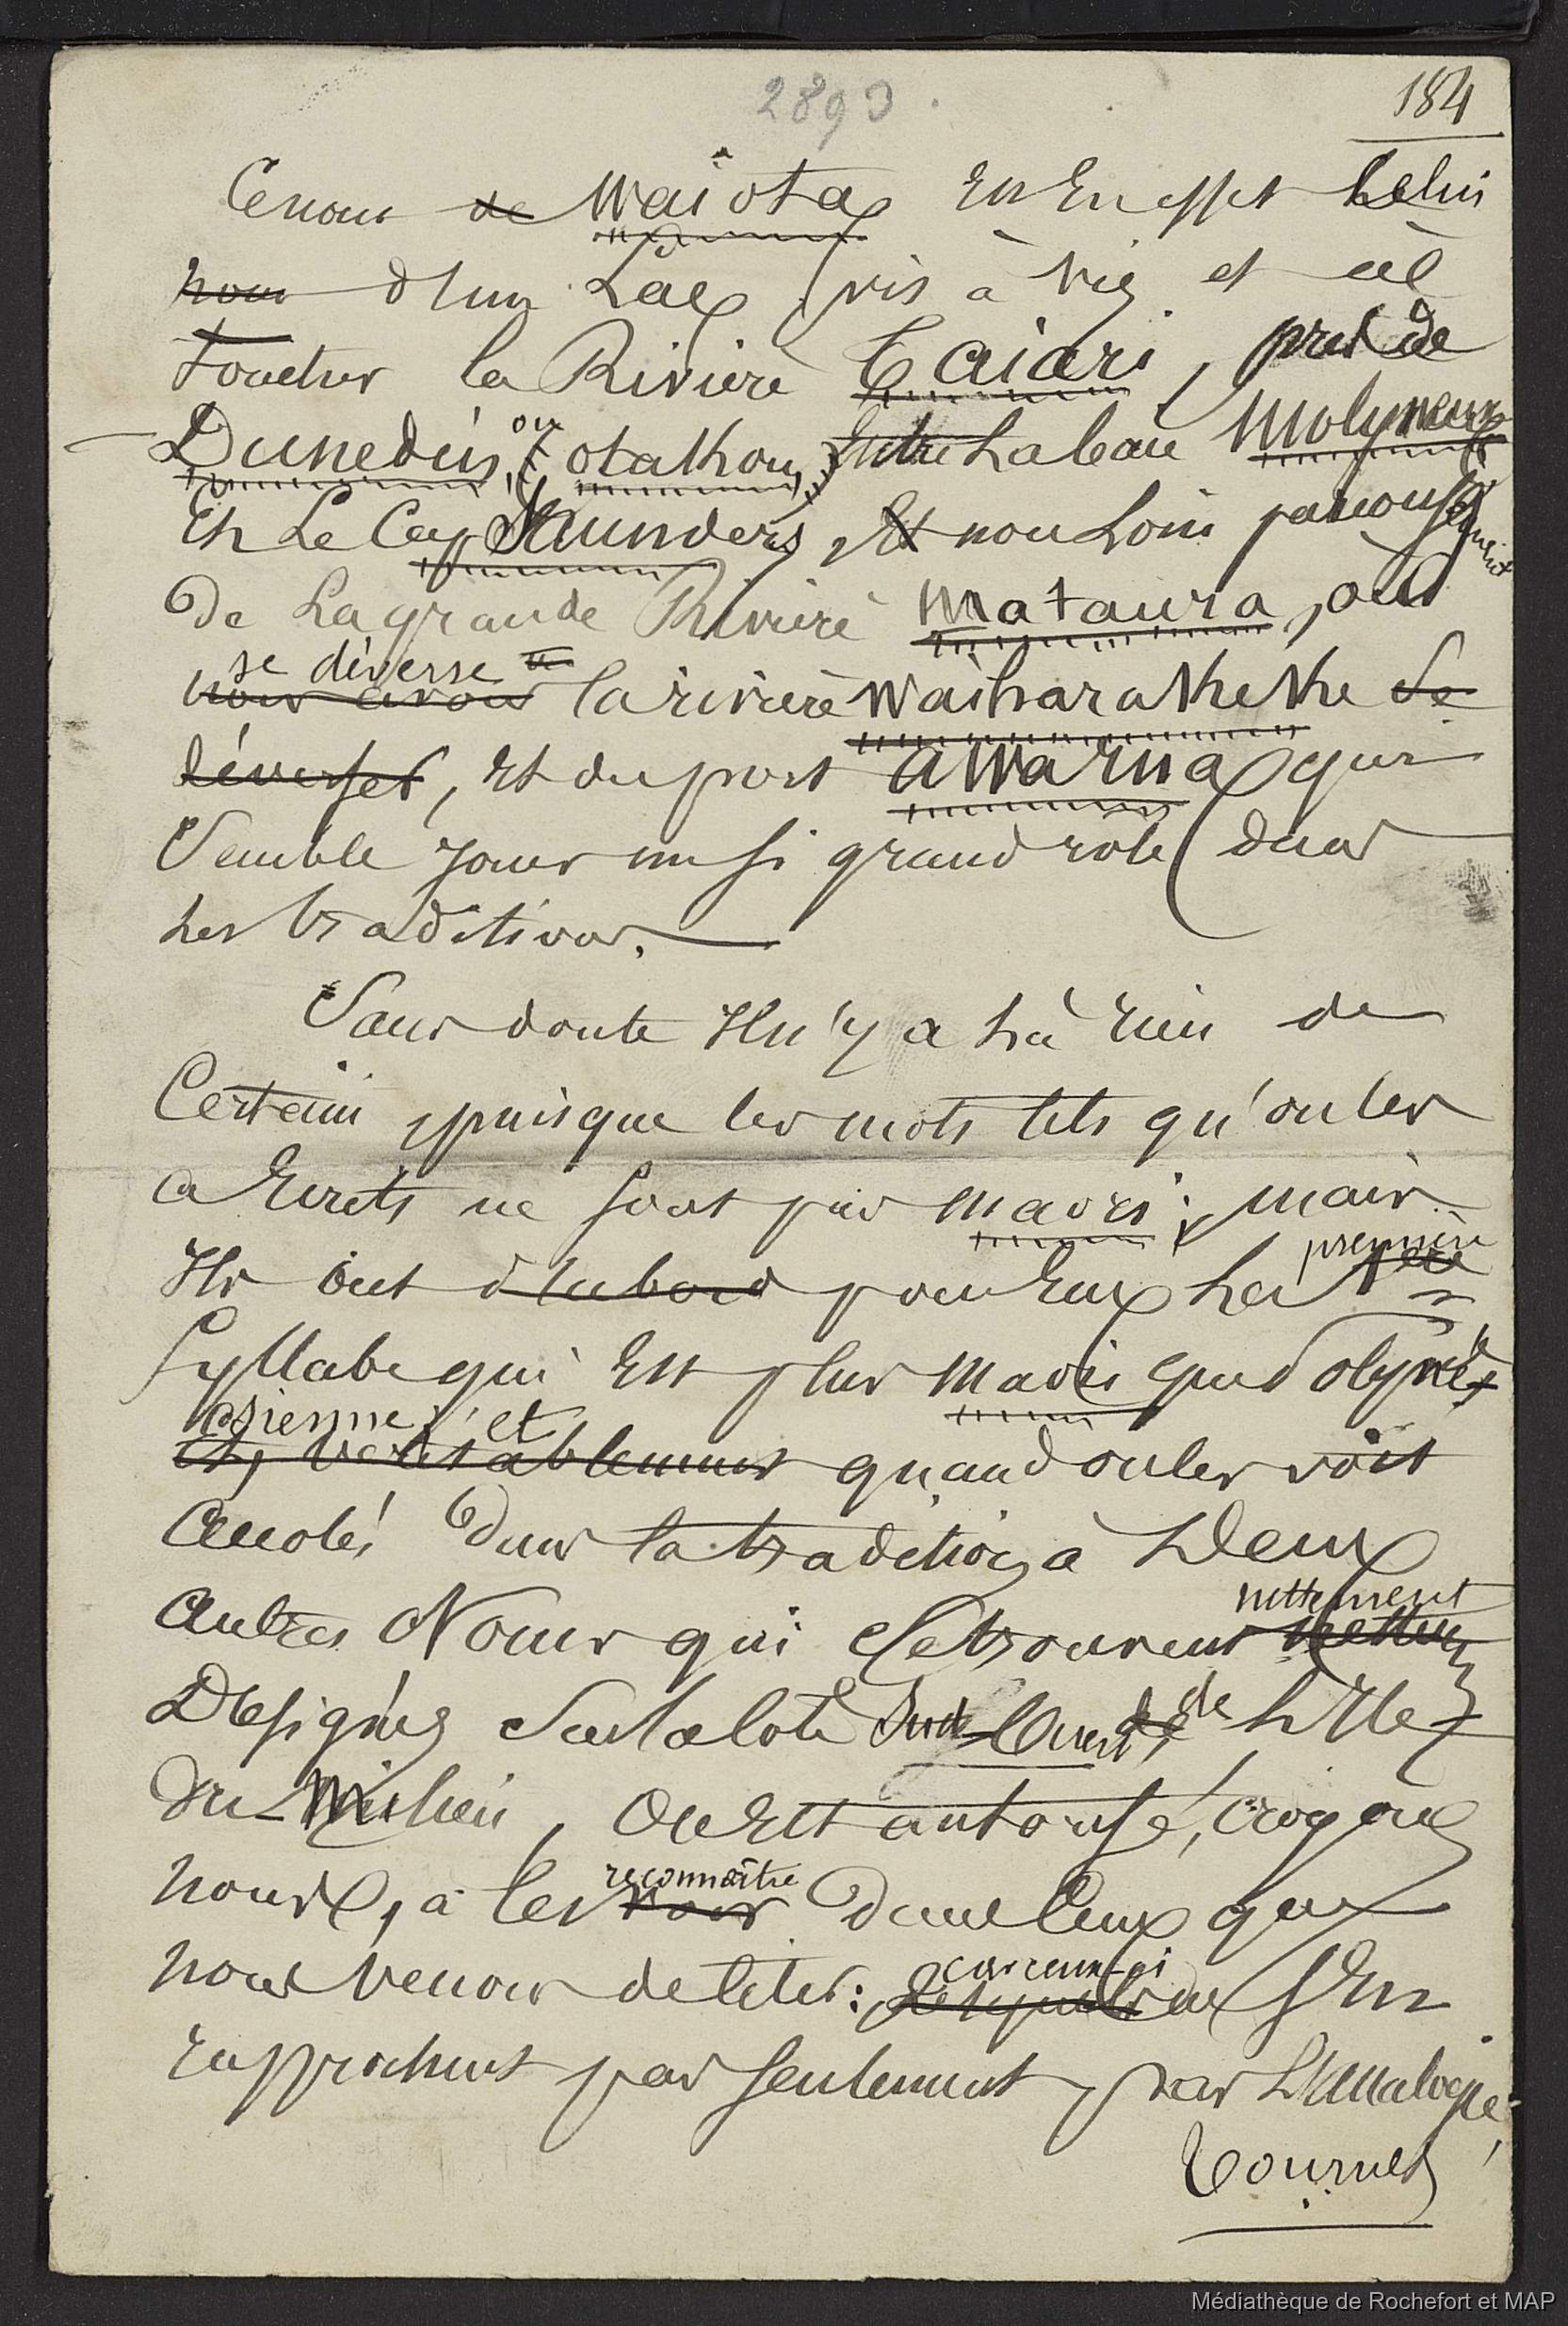 2893
184
Ce nom de Waiota est en effet celui
nom d'un Lac, vis à vis et à
toucher la Rivière Taiari, près de
Dunedin, (ou otakhou) entre La baie Molyneux
Et Le Cap Saunders, et non Loin par conséquent
De La grande Rivière mataura, où
se déverse
nous avons la rivière waiharakheke se
déverser, Et du port awarua qui
Semble jouer un si grand rôle dans
Les traditions.
Sans doute Il n'y a Là rien de
Certain, puisque les mots tels qu'on les
a Ecrits ne sont pas maori; mais
première
Ils ont d'abord pour Eux La
Syllabe qui Est plus maori que Polyné-
sienne; et
et, véritablement quand on les voit
accolés Dans la tradition, à Deux
nettement
autres Noms qui se trouvent
Désignés Sur la côte Sud-Ouest de L'Ile
du-Milieu, on Est autorisé, croyons
reconnaître
nous, à les voir Dans Ceux que
nous venons de citer: car ceux-ci s'en
rapprochent pas seulement par L'analogie.
Tournez
Médiathèque de Rochefort et MAP